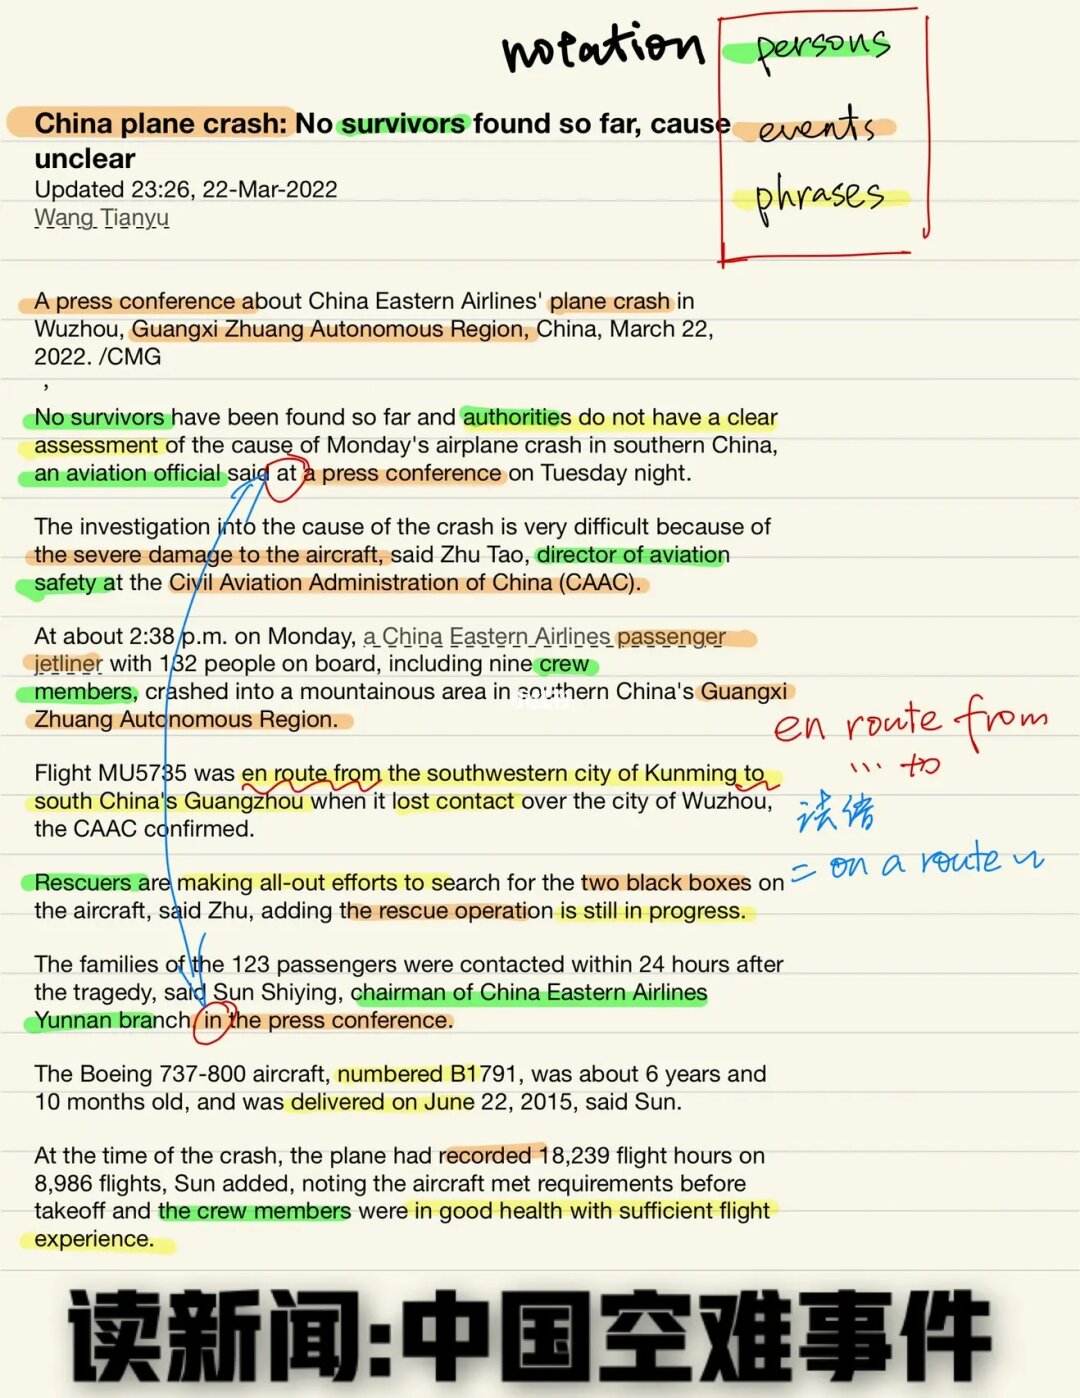 notation
persons
events
phrases
China plane crash: No survivors found so far, cause
unclear
Updated 23:26, 22-Mar-2022
Wang Tianyu
A press conference about China Eastern Airlines' plane crash in
Wuzhou, Guangxi Zhuang Autonomous Region, China, March 22,
2022. /CMG
,
No survivors have been found so far and authorities do not have a clear
assessment of the cause of Monday's airplane crash in southern China,
an aviation official said at a press conference on Tuesday night.
The investigation into the cause of the crash is very difficult because of
the severe damage to the aircraft, said Zhu Tao, director of aviation
safety at the Civil Aviation Administration of China (CAAC).
At about 2:38 p.m. on Monday, a China Eastern Airlines passenger
jetliner with 132 people on board, including nine crew
members, crashed into a mountainous area in southern China's Guangxi
Zhuang Autonomous Region.
en route from
... to
Flight MU5735 was en route from the southwestern city of Kunming to
south China's Guangzhou when it lost contact over the city of Wuzhou,
the CAAC confirmed.
法语
= on a route
Rescuers are making all-out efforts to search for the two black boxes on
the aircraft, said Zhu, adding the rescue operation is still in progress.
The families of the 123 passengers were contacted within 24 hours after
the tragedy, said Sun Shiying, chairman of China Eastern Airlines
Yunnan branch, in the press conference.
The Boeing 737-800 aircraft, numbered B1791, was about 6 years and
10 months old, and was delivered on June 22, 2015, said Sun.
At the time of the crash, the plane had recorded 18,239 flight hours on
8,986 flights, Sun added, noting the aircraft met requirements before
takeoff and the crew members were in good health with sufficient flight
experience.
读新闻:中国空难事件